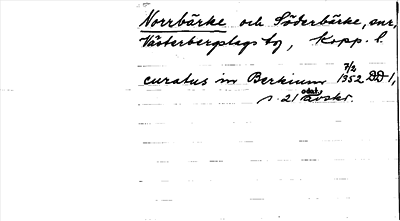 Norrbärke och Söderbärke, snr,
Västerbergslags tg, Kopp. l.
curatus in Berkium 7/2 1352 DD 1,
s. 21 odat. avskr.